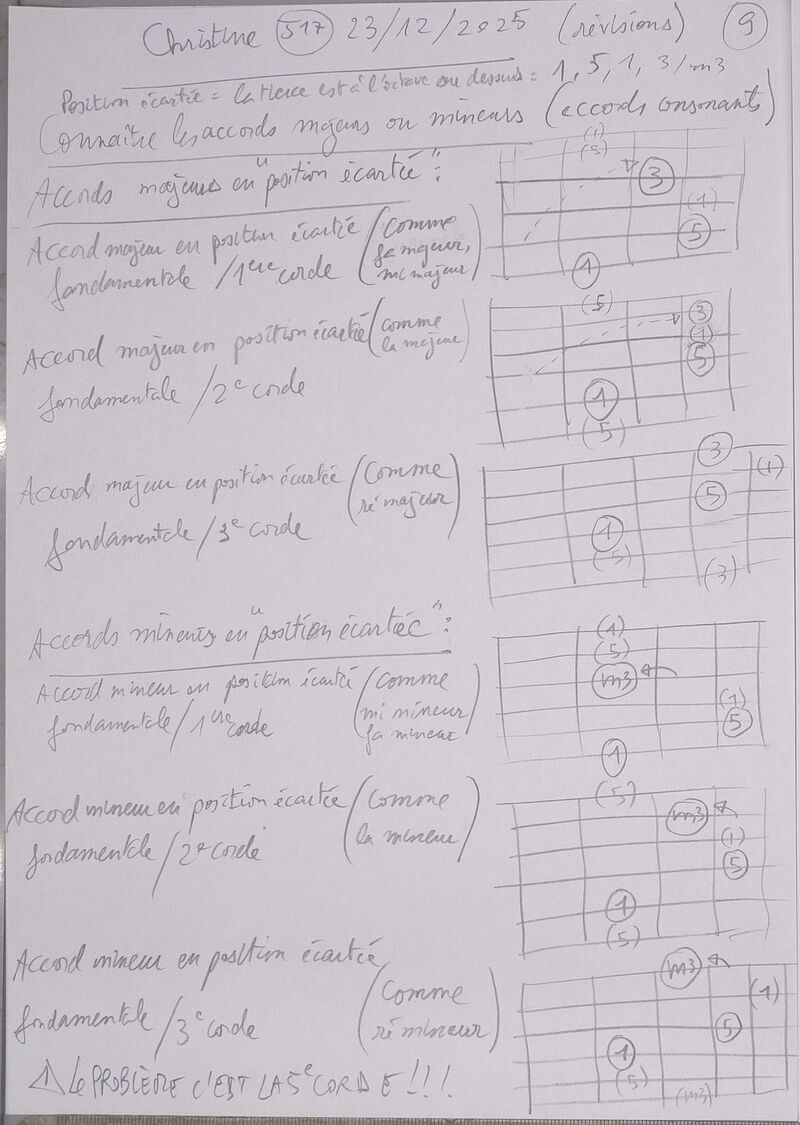 Christine 517 23/12/2025 (révisions) 9
Position écartée = la tierce est à l'octave ou dessus = 1, 5, 1, 3/m3
Connaître les accords majeurs ou mineurs (accords consonants)
Accords majeurs en "position écartée" :
Accord majeur en position écartée (comme fa majeur, mi majeur)
fondamentale / 1ère corde
(1)
(5)
3
(1)
5
1
Accord majeur en position écartée (comme la majeur)
fondamentale / 2e corde
(5)
3
(1)
5
1
(5)
Accord majeur en position écartée (comme ré majeur)
fondamentale / 3e corde
3
(1)
5
1
(5)
(3)
Accords mineurs en "position écartée" :
Accord mineur en position écartée (comme mi mineur fa mineur)
fondamentale / 1ère corde
(1)
(5)
m3
(1)
5
1
Accord mineur en position écartée (comme la mineur)
fondamentale / 2e corde
(5)
m3
(1)
5
1
(5)
Accord mineur en position écartée
fondamentale / 3e corde (comme ré mineur)
m3
(1)
5
1
(5)
(m3)
⚠ LE PROBLÈME C'EST LA 5e CORDE !!!